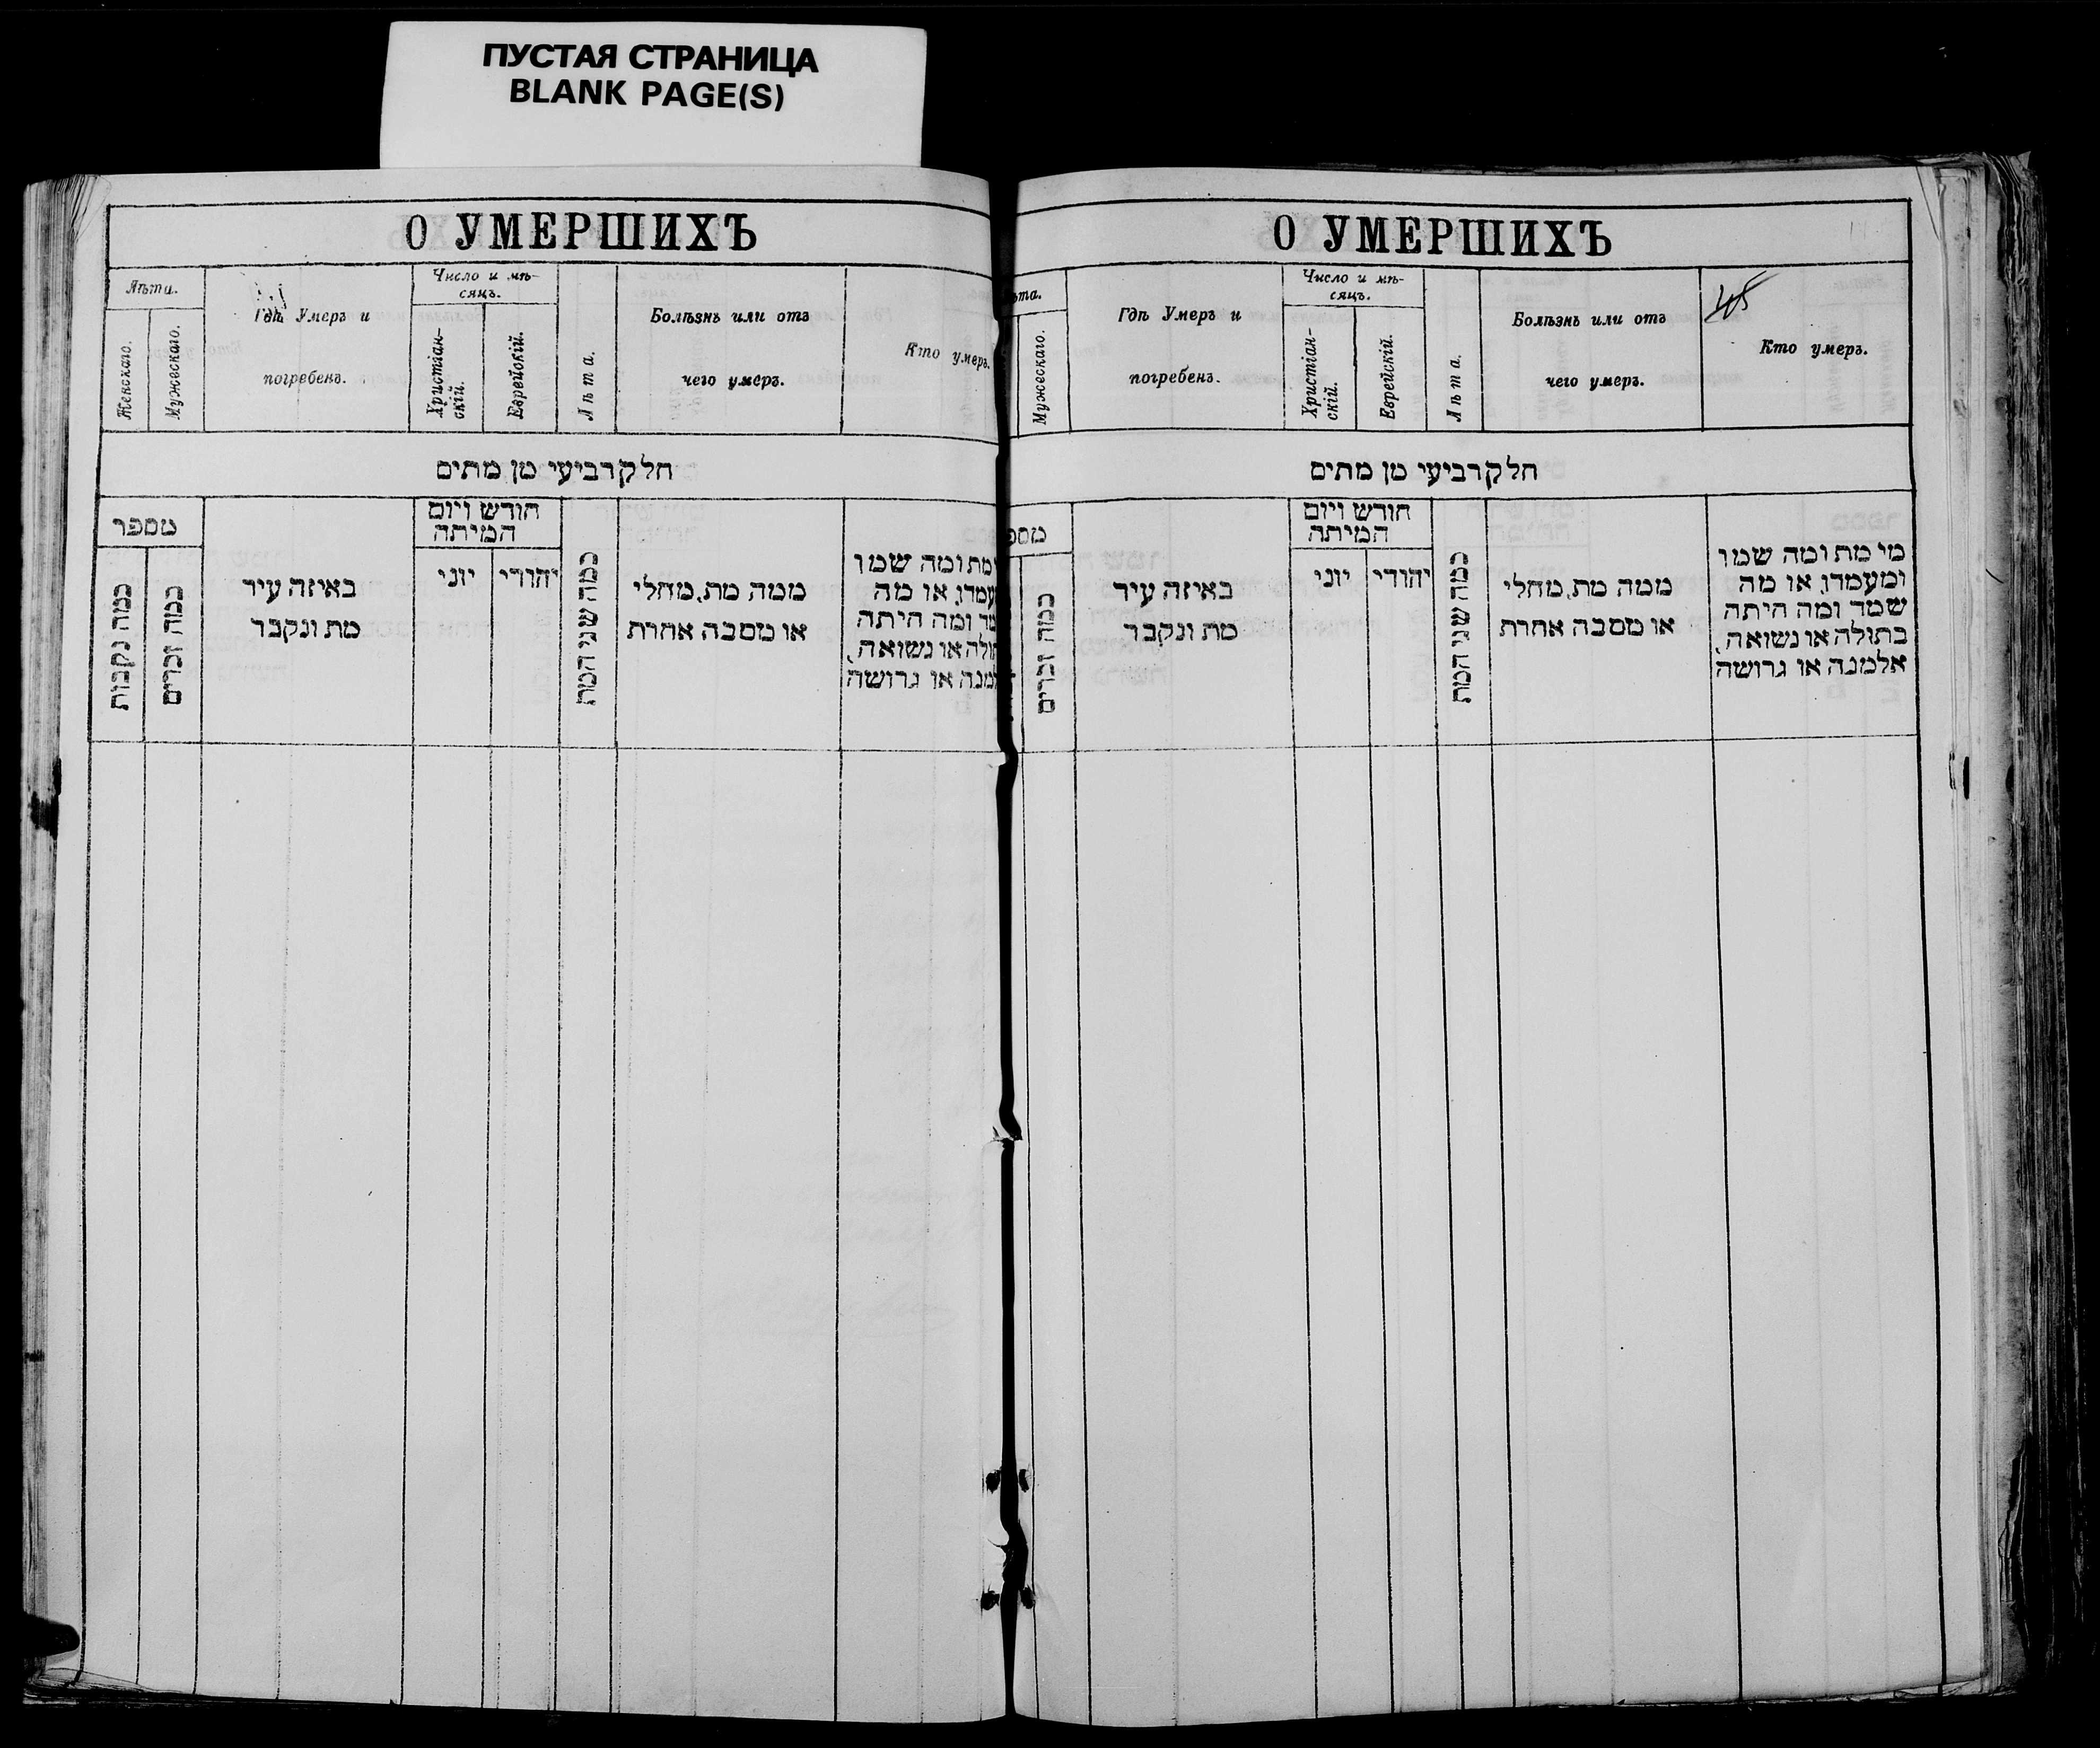 ПУСТАЯ СТРАНИЦА
BLANK PAGE(S)
О УМЕРШИХЪ
Лѣта.
Женскаго.
Мужескаго.
Гдѣ Умеръ и
погребенъ.
Число и мѣ-
сяцъ.
Христіан-
скій.
Еврейскій.
Лѣта.
Болѣзнь или отъ
чего умеръ.
Кто умеръ.
חלק רביעי מן מתים
מספר
כמה נקבות
כמה זכרים
באיזה עיר
מת ונקבר
חודש ויום
המיתה
יוני
יהודי
כמה שני המת
ממה מת, מחלי
או מסבה אחרת
מת ומה שמו
או מה
ומה היתה
או נשואה,
או גרושה
О УМЕРШИХЪ
Мужескаго.
Гдѣ Умеръ и
погребенъ.
Число и мѣ-
сяцъ.
Христіан-
скій.
Еврейскій.
Лѣта.
Болѣзнь или отъ
чего умеръ.
Кто умеръ.
חלק רביעי מן מתים
כמה זכרים
באיזה עיר
מת ונקבר
חודש ויום
המיתה
יוני
יהודי
כמה שני המת
ממה מת, מחלי
או מסבה אחרת
מי מת ומה שמו
ומעמדו, או מה
שמד ומה היתה
בתולה או נשואה,
אלמנה או גרושה